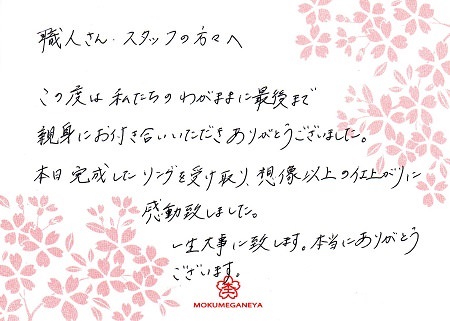 職人さん・スタッフの方々へ
この度は私たちのわがままに最後まで
親身にお付き合いいただきありがとうございました。
本日完成したリングを受け取り、想像以上の仕上がりに
感動致しました。
一生大事に致します。本当にありがとう
ございます。
MOKUMEGANEYA